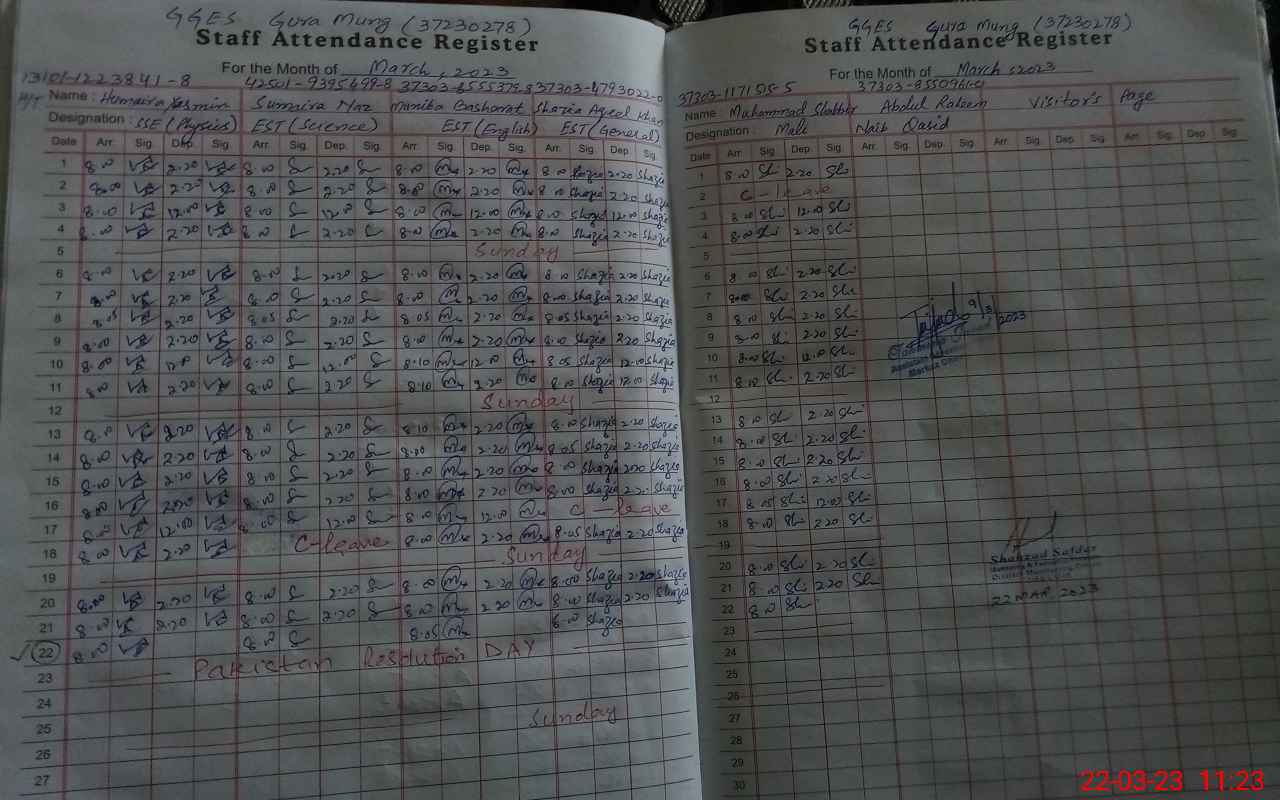 GGES Gura Mung (37230278)
Staff Attendance Register
For the Month of March, 2023
13101-1223841-8 42501-9395499-8 37303-6555379-8 37303-4793022-0
Name : Humaira Yasmin Sumaira Naz Maniba Basharat Shazia Aqeel Khan
Designation : SSE (Physics) EST (Science) EST (English) EST (General)
Date Arr. Sig. Dep. Sig. Arr. Sig. Dep. Sig. Arr. Sig. Dep. Sig. Arr. Sig. Dep. Sig.
1 8.00 2.20 8.00 2.20 8.00 2.20 8.00 Shazia 2.20 Shazia
2 8.00 2.20 8.00 2.20 8.00 2.20 8.00 Shazia 2.20 Shazia
3 8.00 12.00 8.00 12.00 8.00 12.00 8.00 Shazia 12.00 Shazia
4 8.00 2.20 8.00 2.20 8.00 2.20 8.00 Shazia 2.20 Shazia
5 Sunday
6 8.00 2.20 8.00 2.20 8.00 2.20 8.00 Shazia 2.20 Shazia
7 8.00 2.20 8.00 2.20 8.00 2.20 8.00 Shazia 2.20 Shazia
8 8.05 2.20 8.05 2.20 8.05 2.20 8.05 Shazia 2.20 Shazia
9 8.00 2.20 8.00 2.20 8.00 2.20 8.10 Shazia 2.20 Shazia
10 8.00 12.00 8.00 12.00 8.10 12.00 8.05 Shazia 12.00 Shazia
11 8.00 2.20 8.00 2.20 8.10 2.20 8.10 Shazia 12.10 Shazia
12 Sunday
13 8.00 2.20 8.00 2.20 8.10 2.20 8.00 Shazia 2.20 Shazia
14 8.00 2.20 8.00 2.20 8.00 2.20 8.05 Shazia 2.20 Shazia
15 8.00 2.20 8.00 2.20 8.00 2.20 8.00 Shazia 2.20 Shazia
16 8.00 2.20 8.00 2.20 8.00 2.20 8.00 Shazia 2.20 Shazia
17 8.00 12.00 8.00 12.00 8.00 12.00 C-leave
18 8.00 2.20 C-leave 8.00 2.20 8.05 Shazia 2.20 Shazia
19 Sunday
20 8.00 2.20 8.00 2.20 8.00 2.20 8.00 Shazia 2.20 Shazia
21 8.00 2.20 8.00 2.20 8.00 2.20 8.00 Shazia 2.20 Shazia
22 8.00 8.00 8.05 8.00 Shazia
23 Pakistan Resolution DAY
24
25 Sunday
26
27
GGES Gura Mung (37230278)
Staff Attendance Register
For the Month of March 2023
37303-1171515-5 37303-8550961-9
Name : Muhammad Shabbir Abdul Raheem Visitor's Page
Designation : Mali Naib Qasid
Date Arr. Sig. Dep. Sig. Arr. Sig. Dep. Sig. Arr. Sig. Dep. Sig. Arr. Sig. Dep. Sig.
1 8.00 Sh 2.20 Sh
2 C-leave
3 8.00 Sh 12.00 Sh
4 8.00 Sh 2.20 Sh
5
6 8.00 Sh 2.20 Sh
7 8.00 Sh 2.20 Sh
8 8.00 Sh 2.20 Sh
9 8.00 Sh 2.20 Sh
10 8.00 Sh 12.00 Sh
11 8.10 Sh 2.20 Sh
12
13 8.00 Sh 2.20 Sh
14 8.00 Sh 2.20 Sh
15 8.00 Sh 2.20 Sh
16 8.00 Sh 2.20 Sh
17 8.05 Sh 12.00 Sh
18 8.00 Sh 2.20 Sh
19
20 8.00 Sh 2.20 Sh
21 8.00 Sh 2.20 Sh
22 8.00 Sh
23
24
25
26
27
28
29
30
9/3/2023
Shahzad Safdar
22 MAR 2023
22-03-23 11:23